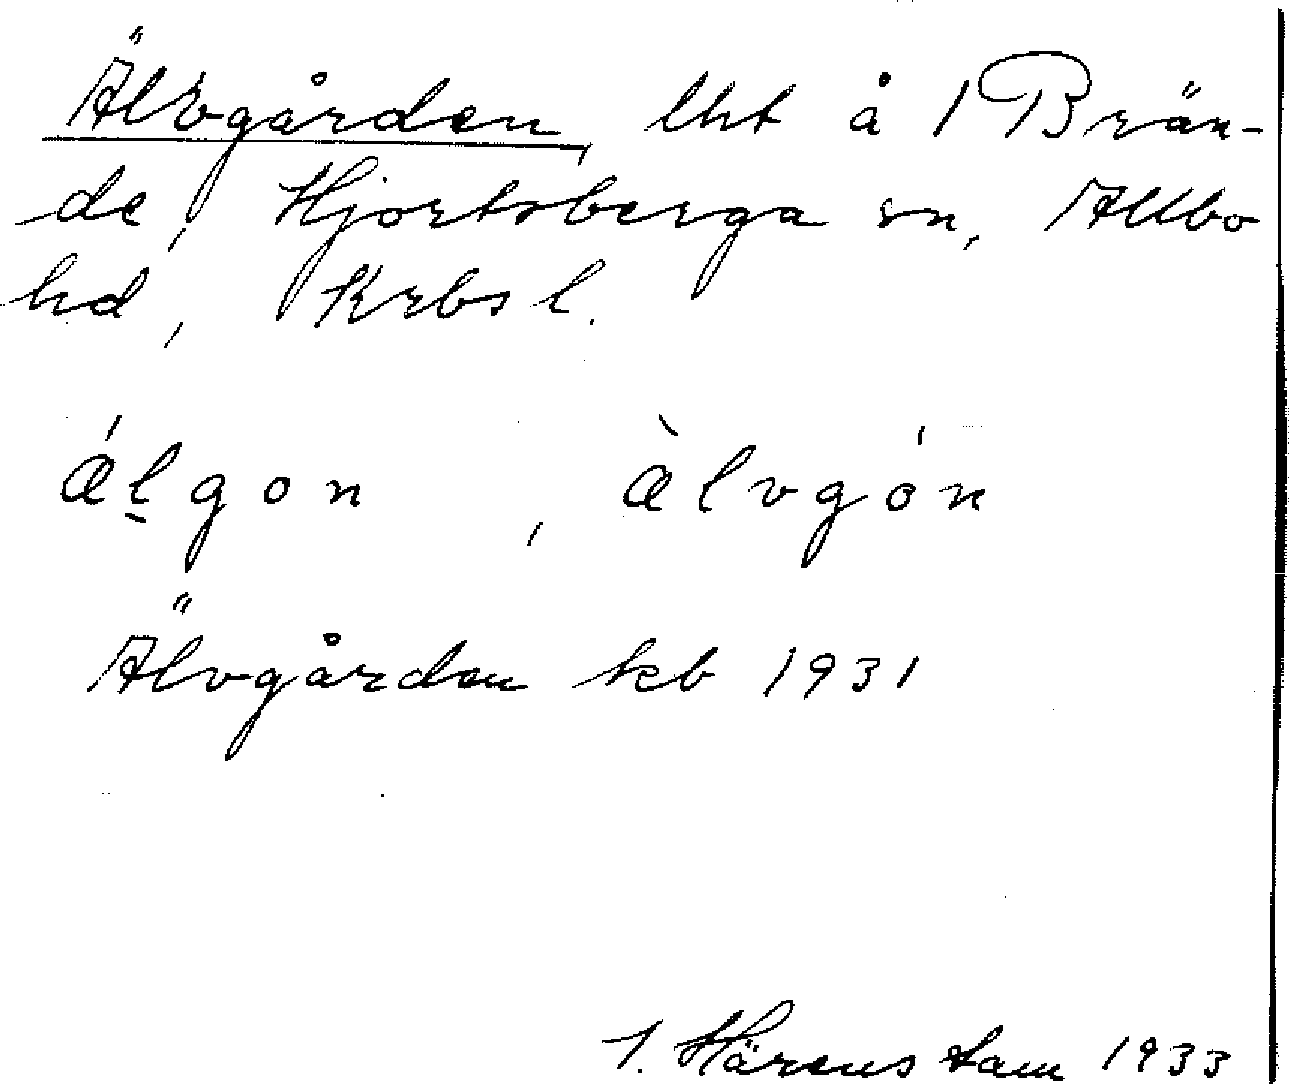 Älvgården, lht å 1 Brän-
de, Hjortsberga sn, Allbo
hd, Krbsl.
ǽl̠gon , æ̀lvgón
Älvgården kb 1931
I. Härenstam 1933